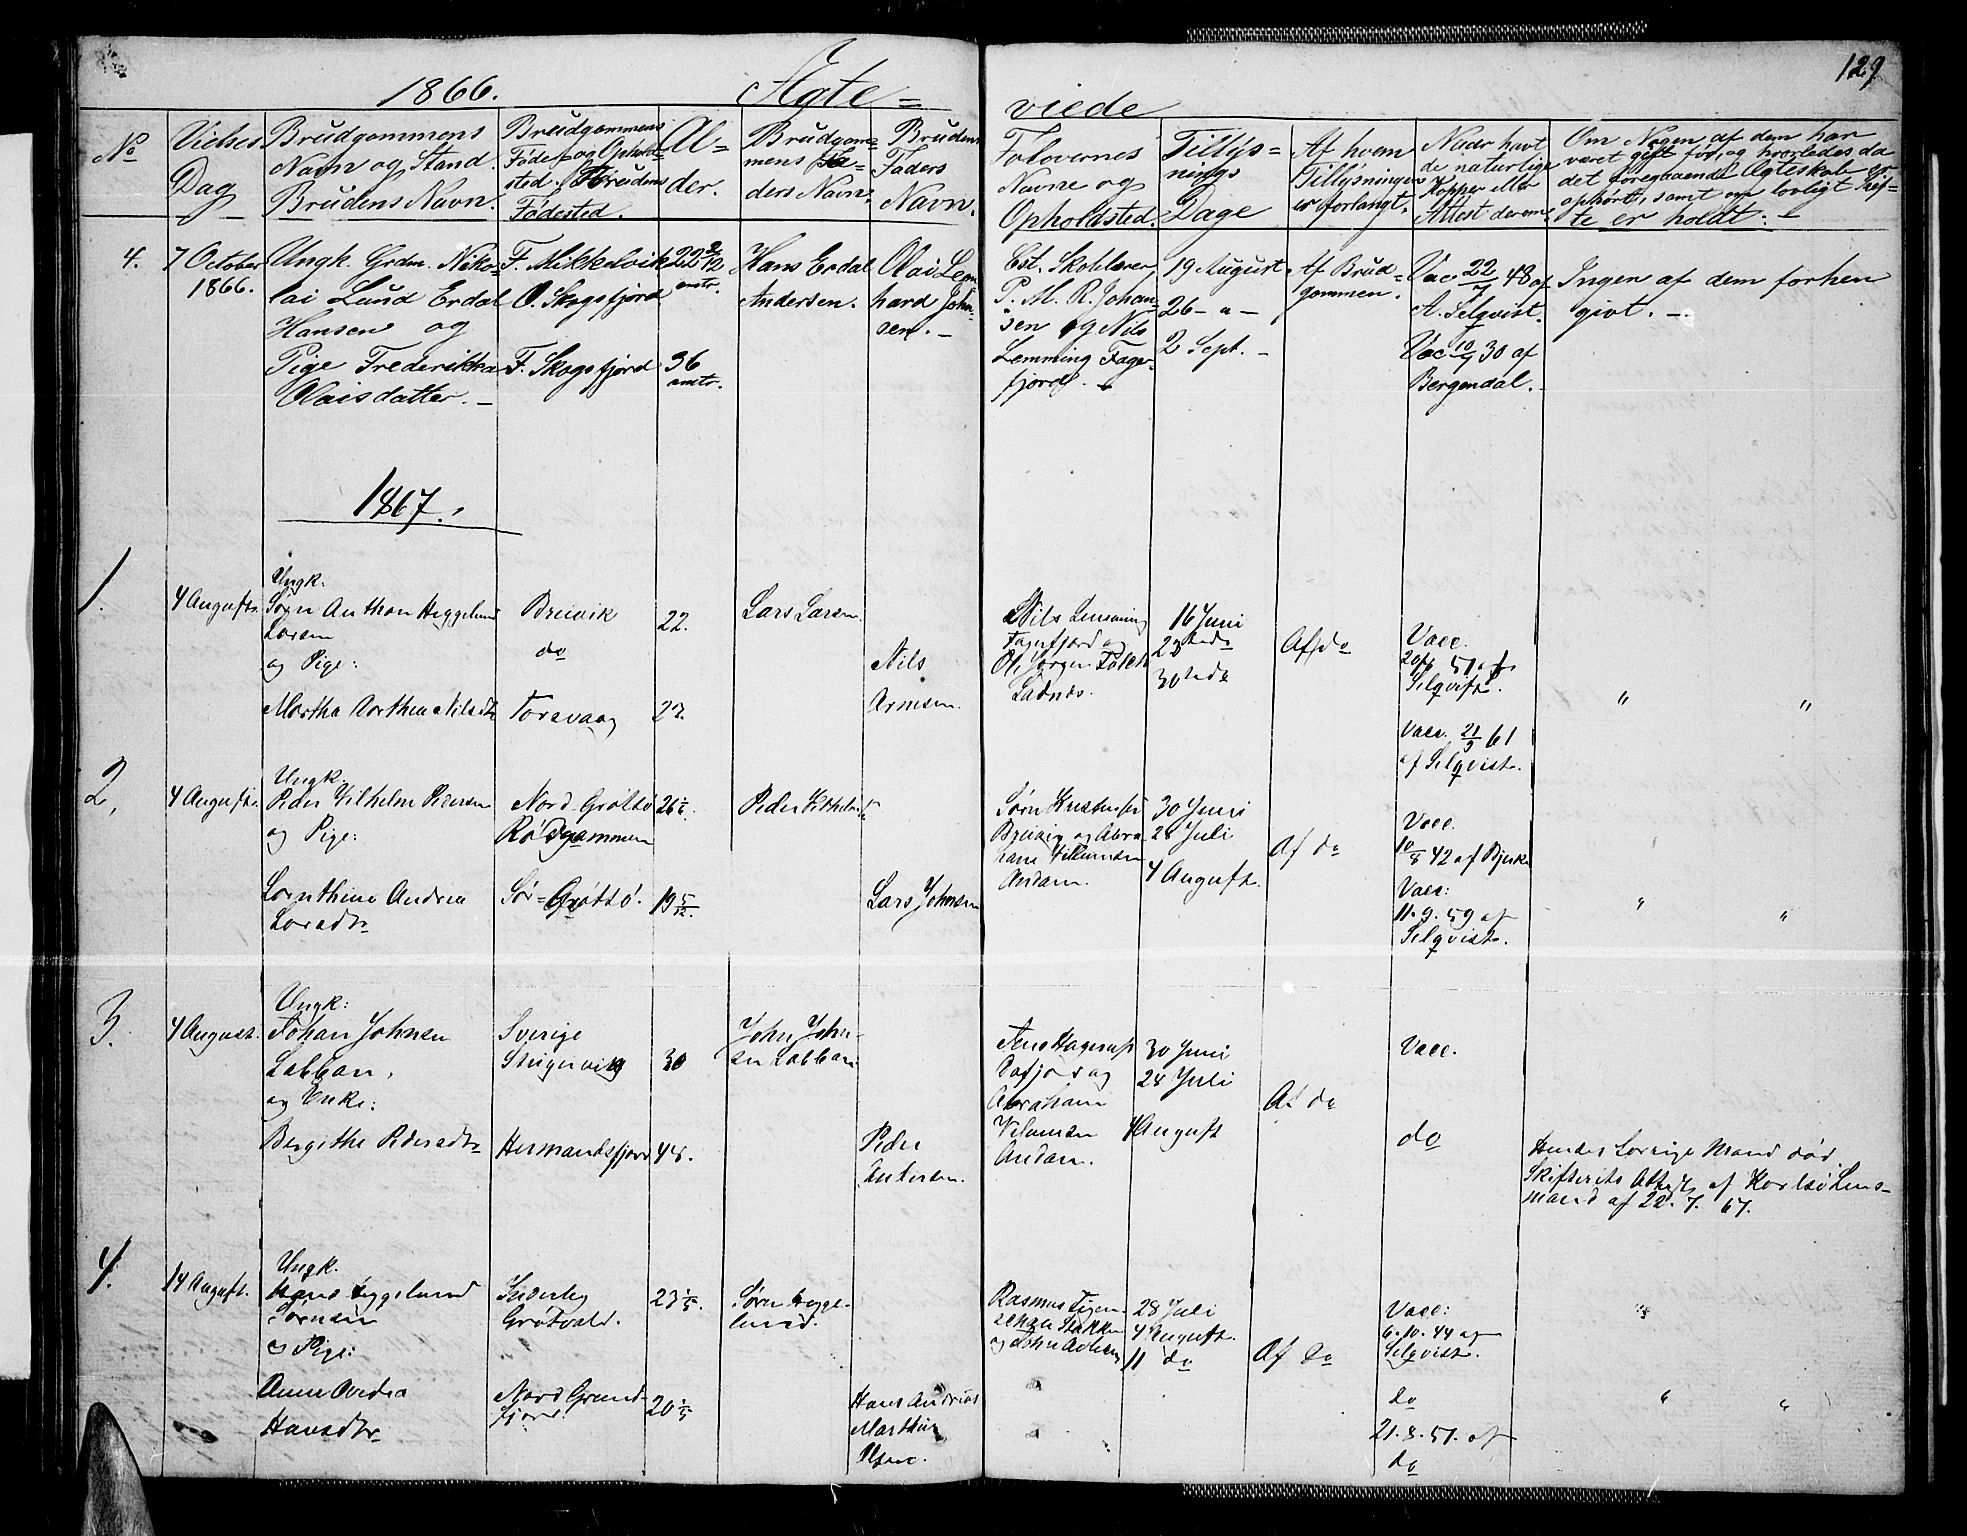 129
1866. Ægte=
viede
No
Vielses
Dag
Brudgommens
Navn og Stand.
Brudens Navn.
Brudgommens
Føde- og Ophold-
sted. Brudens
Fødested.
Al=
der.
Brudgom=
mens Fa=
ders Navn.
Brudens
Faders
Navn.
Forlovernes
Navne og
Opholdsted.
Tillys=
nings
Dage
Af hvem
Tillysningen
er forlangt.
Naar havt
de naturlige
Kopper eller
Attest derom.
Om Nogen af dem har
været gift før, og hvorledes da
det foregaaende Ægteskab er
ophørt, samt om lovligt Skif=
te er holdt. -
4.
7 October
1866.
Ungk. Grdm. Niko=
lai Lund Erdal
Hansen og
Pige Frederikka
Olaisdatter. -
F. Mikkelvik
O. Skogsfjord
F. Skogsfjord
22 2/12
36
Hans Erdal
Andersen.
Olai Leon
hard John=
sen. -
Est. Skolelærer
P. M. R. Johan=
sen og Nils
Lemming Fager
fjord. -
19 August
26 - " -
2 Sept. -
Af Brud=
gommen.
Vac 22/7 48 af
A. Selqvist.
Vac 10/7 30 af
Bergendal. -
Ingen af dem forhen
givt. -
1867.
1.
4 August.
Ungk:
Søren Anthon Heggelund
Larsen
og Pige:
Martha Dorthea Nilsdtr
Breivik
do
Torsvaag
22.
27.
Lars Larsen
Nils
Arnesen.
Nils Lemming
Fagerfjord og
Ole Jørgen Falch
16 Juni
23 do
30 do
Af do
Vacc.
51 af
Selqvist.
Vacc. 21/9 61
af Selqvist.
" "
2,
4 August.
Ungk.
Peder Vilhelm Pedersen
og Pige:
Andrea
Larsdtr
Nord-Grøttø
Rødgammen
Sør-Grøttø.
26
19 5/12.
Lars Johnsen
Søren
Breivig og Abra
ham Villumsen
Andam.
30 Juni
28 Juli
4 August.
Af do
Vacc.
10/8 42 af Bjerke
Vacc:
11.9.59 af
Selqvist.
" "
3.
4 August.
Ungk:
Johan Johnsen
Labban,
og Enke:
Bergithe Pedersdtr
Sverige
Hermandsfjord
30
48.
John John-
sen Labban.
Peder
Andersen.
Jens Hagerup
Dafjord og
Abraham
Vilumsen
Andam.
30 Juni
28 Juli
4 August
Af do
Vacc.
do
Hendes forrige Mand død
Skifterets Attest af Karlsø Lens-
mand af 22. 7. 67.
4.
14 August.
Ungk.
Hans Heggelund
Sørensen
og Pige:
Hansdtr
Inderby
Grøtvold.
Nord Grund-
fjord.
23 1/5.
20 1/5
Søren Hegge-
lund.
Hans Andreas
Marthin
Olsen.
Rasmus
28 Juli
4 August.
11 do
Af do
Vacc:
6.10.44 af
Selqvist.
do
21.8.51. af
do
"
" "